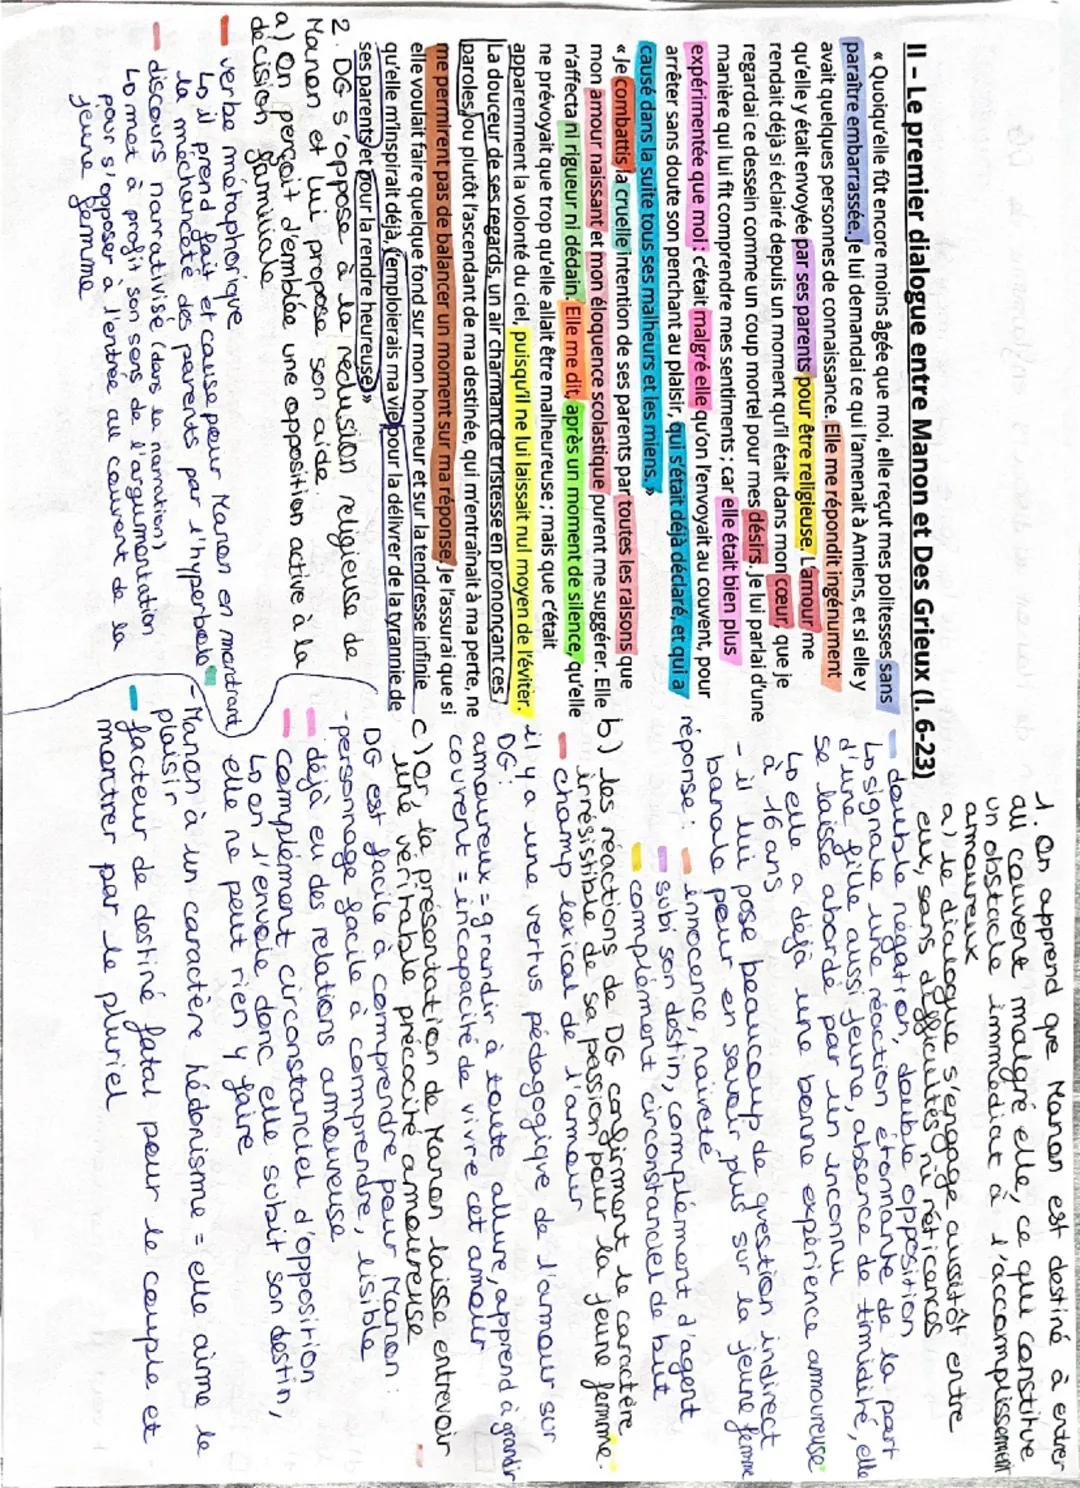 II – Le premier dialogue entre Manon et Des Grieux (l. 6-23)
« Quoiqu'elle fût encore moins âgée que moi, elle reçut mes politesses sans
paraître embarrassée. Je lui demandai ce qui l'amenait à Amiens, et si elle y
avait quelques personnes de connaissance. Elle me répondit ingénument
qu'elle y était envoyée par ses parents pour être religieuse. L'amour me
rendait déjà si éclairé depuis un moment qu'il était dans mon cœur, que je
regardai ce dessein comme un coup mortel pour mes désirs. Je lui parlai d'une
manière qui lui fit comprendre mes sentiments ; car elle était bien plus
expérimentée que moi : c'était malgré elle qu'on l'envoyait au couvent, pour
arrêter sans doute son penchant au plaisir, qui s'était déjà déclaré, et qui a
causé dans la suite tous ses malheurs et les miens. »
« Je combattis la cruelle intention de ses parents par toutes les raisons que
mon amour naissant et mon éloquence scolastique purent me suggérer. Elle
n'affecta ni rigueur ni dédain. Elle me dit, après un moment de silence, qu'elle
ne prévoyait que trop qu'elle allait être malheureuse ; mais que c'était
apparemment la volonté du ciel, puisqu'il ne lui laissait nul moyen de l'éviter.
La douceur de ses regards, un air charmant de tristesse en prononçant ces
paroles, ou plutôt l'ascendant de ma destinée, qui m'entraînait à ma perte, ne
me permirent pas de balancer un moment sur ma réponse. Je l'assurai que si
elle voulait faire quelque fond sur mon honneur et sur la tendresse infinie
qu'elle m'inspirait déjà, j'emploierais ma vie pour la délivrer de la tyrannie de
ses parents et pour la rendre heureuse. »
2. DG s'oppose à la réclusion religieuse de
Manon et lui propose son aide.
a) On perçoit d'emblée une opposition active à la
décision familiale
- verbe métaphorique
↳ il prend fait et cause pour Manon en montrant
la méchanceté des parents par l'hyperbole
- discours narrativisé (dans la narration)
↳ met à profit son sens de l'argumentation
pour s'opposer à l'entrée au couvent de la
jeune femme
1. On apprend que Manon est destiné à entrer
au couvent malgré elle, ce qui constitue
un obstacle immédiat à l'accomplissement
amoureux
a) le dialogue s'engage aussitôt entre
eux, sans difficultés ni réticences
- double négation, double opposition
↳ signale une réaction étonnante de la part
d'une fille aussi jeune, absence de timidité, elle
se laisse abordé par un inconnu
↳ elle a déjà une bonne expérience amoureuse
à 16 ans
- il lui pose beaucoup de question indirect
banale pour en savoir plus sur la jeune femme
réponse : - innocence, naïveté
- subi son destin, complément d'agent
- complément circonstanciel de but
b) les réactions de DG confirment le caractère
irrésistible de sa passion pour la jeune femme.
- champ lexical de l'amour
il y a une vertus pédagogique de l'amour sur
DG :
amoureux = grandir à toute allure, apprend à grandir
couvent = incapacité de vivre cet amour
c) or, la présentation de Manon laisse entrevoir
une véritable précocité amoureuse
DG est facile à comprendre pour Manon :
- personnage facile à comprendre, lisible
- déjà eu des relations amoureuse
- complément circonstanciel d'opposition
↳ on l'envoie donc elle subit son destin,
elle ne peut rien y faire
- Manon à un caractère hédonisme = elle aime le
plaisir
- facteur de destiné fatal pour le couple et
montrer par le pluriel